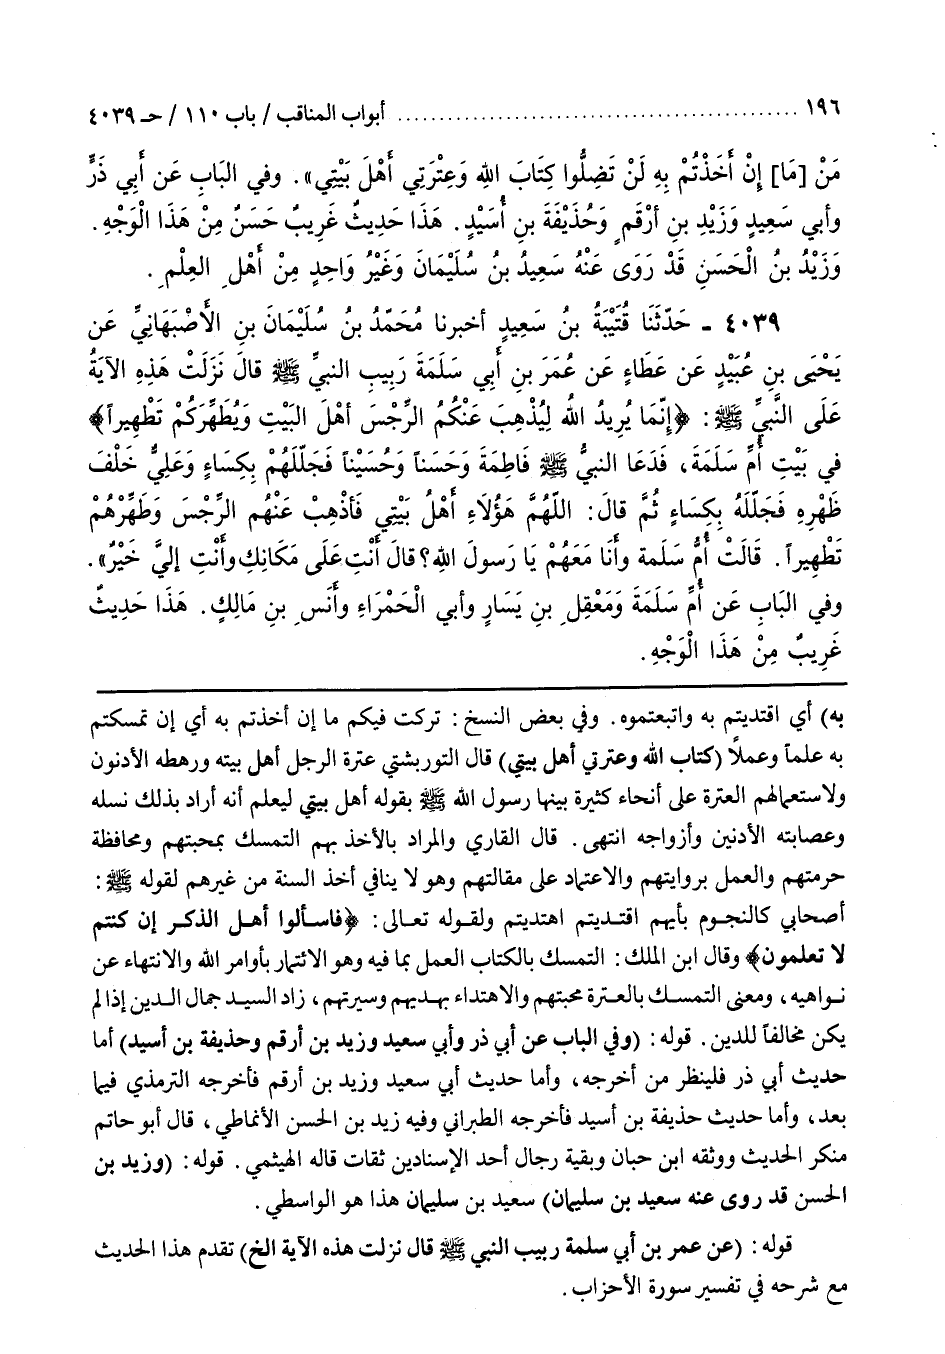 ١٩٦ ................................................ أبواب المناقب / باب ١١٠ / حـ ٤٠٣٩
مَنْ [مَا] إِنْ أَخَذْتُمْ بِهِ لَنْ تَضِلُّوا كِتَابَ اللهِ وَعِتْرَتِي أَهْلَ بَيْتِي». وفي البَابِ عَن أَبِي ذَرٍّ
وأبي سَعِيدٍ وَزَيْدِ بنِ أَرْقَمٍ وَحُذَيْفَةَ بنِ أُسَيْدٍ. هَذَا حَدِيثٌ غَرِيبٌ حَسَنٌ مِنْ هَذَا الْوَجْهِ.
وَزَيْدُ بنُ الْحَسَنِ قَدْ رَوَى عَنْهُ سَعِيدُ بنُ سُلَيْمَانَ وَغَيْرُ وَاحِدٍ مِنْ أَهْلِ العِلْمِ.
٤٠٣٩ - حَدّثَنَا قُتَيْبَةُ بنُ سَعِيدٍ أخبرنا مُحَمّدُ بنُ سُلَيْمَانَ بنِ الأَصْبَهَانِيِّ عَن
يَحْيَى بنِ عُبَيْدٍ عَن عَطَاءٍ عَن عُمَرَ بنِ أَبِي سَلَمَةَ رَبِيبِ النبيِّ ﷺ قالَ نَزَلَتْ هَذِهِ الآيَةُ
عَلَى النَّبِيِّ ﷺ: ﴿إِنّمَا يُرِيدُ اللهُ لِيُذْهِبَ عَنْكُمُ الرِّجْسَ أَهْلَ البَيْتِ وَيُطَهِّرَكُمْ تَطْهِيراً﴾
في بَيْتِ أُمِّ سَلَمَةَ، فَدَعَا النبيُّ ﷺ فَاطِمَةَ وَحَسَناً وَحُسَيْناً فَجَلّلَهُمْ بِكِسَاءٍ وَعَلِيٌّ خَلْفَ
ظَهْرِهِ فَجَلّلَهُ بِكِسَاءٍ ثُمَّ قالَ: اللّهُمَّ هَؤُلَاءِ أَهْلُ بَيْتِي فَأَذْهِبْ عَنْهُم الرِّجْسَ وَطَهِّرْهُمْ
تَطْهِيراً. قَالَتْ أُمُّ سَلَمة وأَنَا مَعَهُمْ يَا رَسولَ اللهِ؟ قالَ أَنْتِ عَلَى مَكَانِكِ وأَنْتِ إِليَّ خَيْرٌ».
وفي البَابِ عَن أُمِّ سَلَمَةَ وَمَعْقِلِ بنِ يَسَارٍ وأبي الْحَمْرَاءِ وأَنَسِ بنِ مَالِكٍ. هَذَا حَدِيثٌ
غَرِيبٌ مِنْ هَذَا الْوَجْهِ.
به) أي اقتديتم به واتبعتموه. وفي بعض النسخ: تركت فيكم ما إن أخذتم به أي إن تمسكتم
به علماً وعملاً (كتاب الله وعترتي أهل بيتي) قال التوربشتي عترة الرجل أهل بيته ورهطه الأدنون
ولاستعمالهم العترة على أنحاء كثيرة بينها رسول الله ﷺ بقوله أهل بيتي ليعلم أنه أراد بذلك نسله
وعصابته الأدنين وأزواجه انتهى. قال القاري والمراد بالأخذ بهم التمسك بمحبتهم ومحافظة
حرمتهم والعمل بروايتهم والاعتماد على مقالتهم وهو لا ينافي أخذ السنة من غيرهم لقوله ﷺ:
أصحابي كالنجوم بأيهم اقتديتم اهتديتم ولقوله تعالى: ﴿فاسألوا أهل الذكر إن كنتم
لا تعلمون﴾ وقال ابن الملك: التمسك بالكتاب العمل بما فيه وهو الائتمار بأوامر الله والانتهاء عن
نواهيه، ومعنى التمسك بالعترة محبتهم والاهتداء بهديهم وسيرتهم، زاد السيد جمال الدين إذا لم
يكن مخالفاً للدين. قوله: (وفي الباب عن أبي ذر وأبي سعيد وزيد بن أرقم وحذيفة بن أسيد) أما
حديث أبي ذر فلينظر من أخرجه، وأما حديث أبي سعيد وزيد بن أرقم فأخرجه الترمذي فيما
بعد، وأما حديث حذيفة بن أسيد فأخرجه الطبراني وفيه زيد بن الحسن الأنماطي، قال أبو حاتم
منكر الحديث ووثقه ابن حبان وبقية رجال أحد الإسنادين ثقات قاله الهيثمي. قوله: (وزيد بن
الحسن قد روى عنه سعيد بن سليمان) سعيد بن سليمان هذا هو الواسطي.
قوله: (عن عمر بن أبي سلمة ربيب النبي ﷺ قال نزلت هذه الآية الخ) تقدم هذا الحديث
مع شرحه في تفسير سورة الأحزاب.